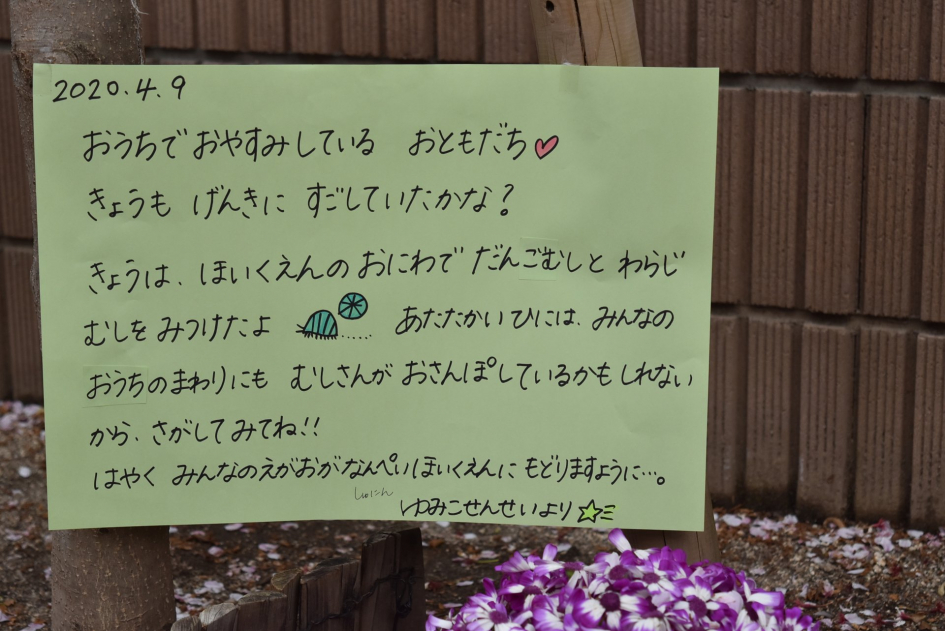 2020.4.9
おうちで おやすみしている おともだち♡
きょうも げんきに すごしていたかな?
きょうは、ほいくえんの おにわで だんごむしと わらじ
むしを みつけたよ あたたかい ひには、みんなの
おうちのまわりにも むしさんが おさんぽしているかもしれない
から、さがしてみてね!!
はやく みんなのえがおが なんぺいほいくえんに もどりますように…。
しゅにん
ゆみこせんせいより☆